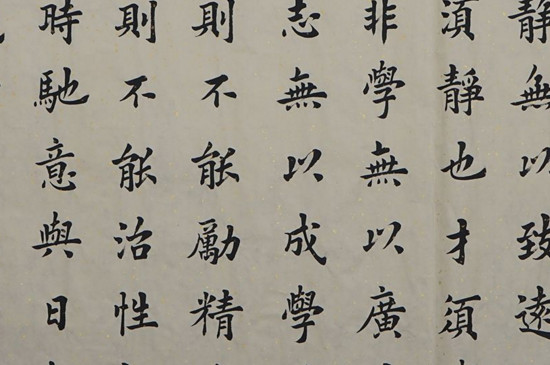 靜無以致遠
須靜也才須
非學無以廣
志無以成學
則不能勵精
則不能治性
時馳意與日